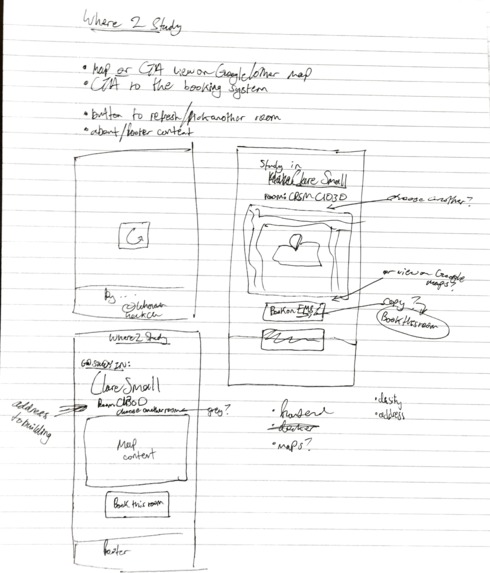 Where 2 Study
• Map or CTA view on Google/other map
• CTA to the booking system
• button to refresh/pick another room
• about/footer content
by ...
Study in
Clare Small
Room: CRSM C1030
choose another?
or view on Google
maps?
Book on EMS
copy?
Book this room
Where 2 Study
GO STUDY IN:
Clare Small
Room: C1B30
choose another room
grey?
address
to building
Map
content
Book this room
footer
• docker
• maps?
• address